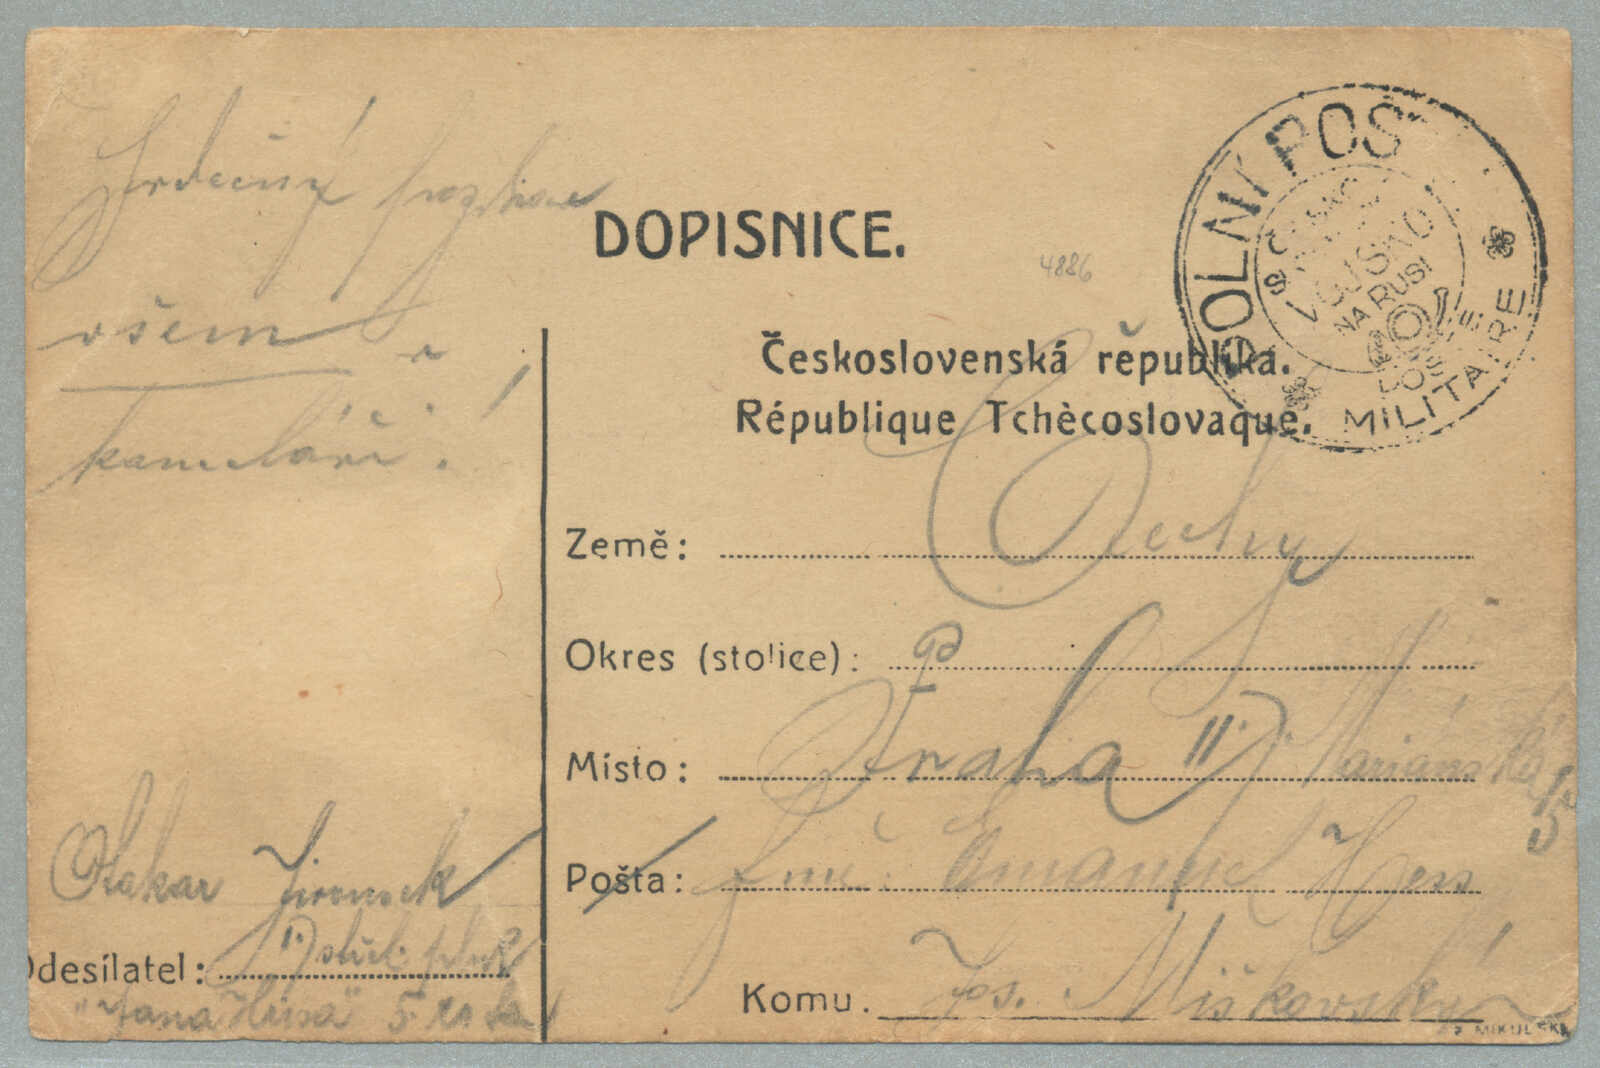 Srdečný pozdrav
všem
kamarádi!
DOPISNICE.
4886
Československá republika.
République Tchècoslovaque.
POLNÍ POŠ
VOJSKO
NA RUSI
POSTE
MILITAIRE
Země: Čechy
Okres (stolice):
Místo: Praha II. Mariánská
Pošta: Emanuel Hess
Komu. Jos. Miškovský
Otakar Jirousek
Odesílatel: 1 střel. pluk
"Jana Husa" 5. rota
MIKULSK